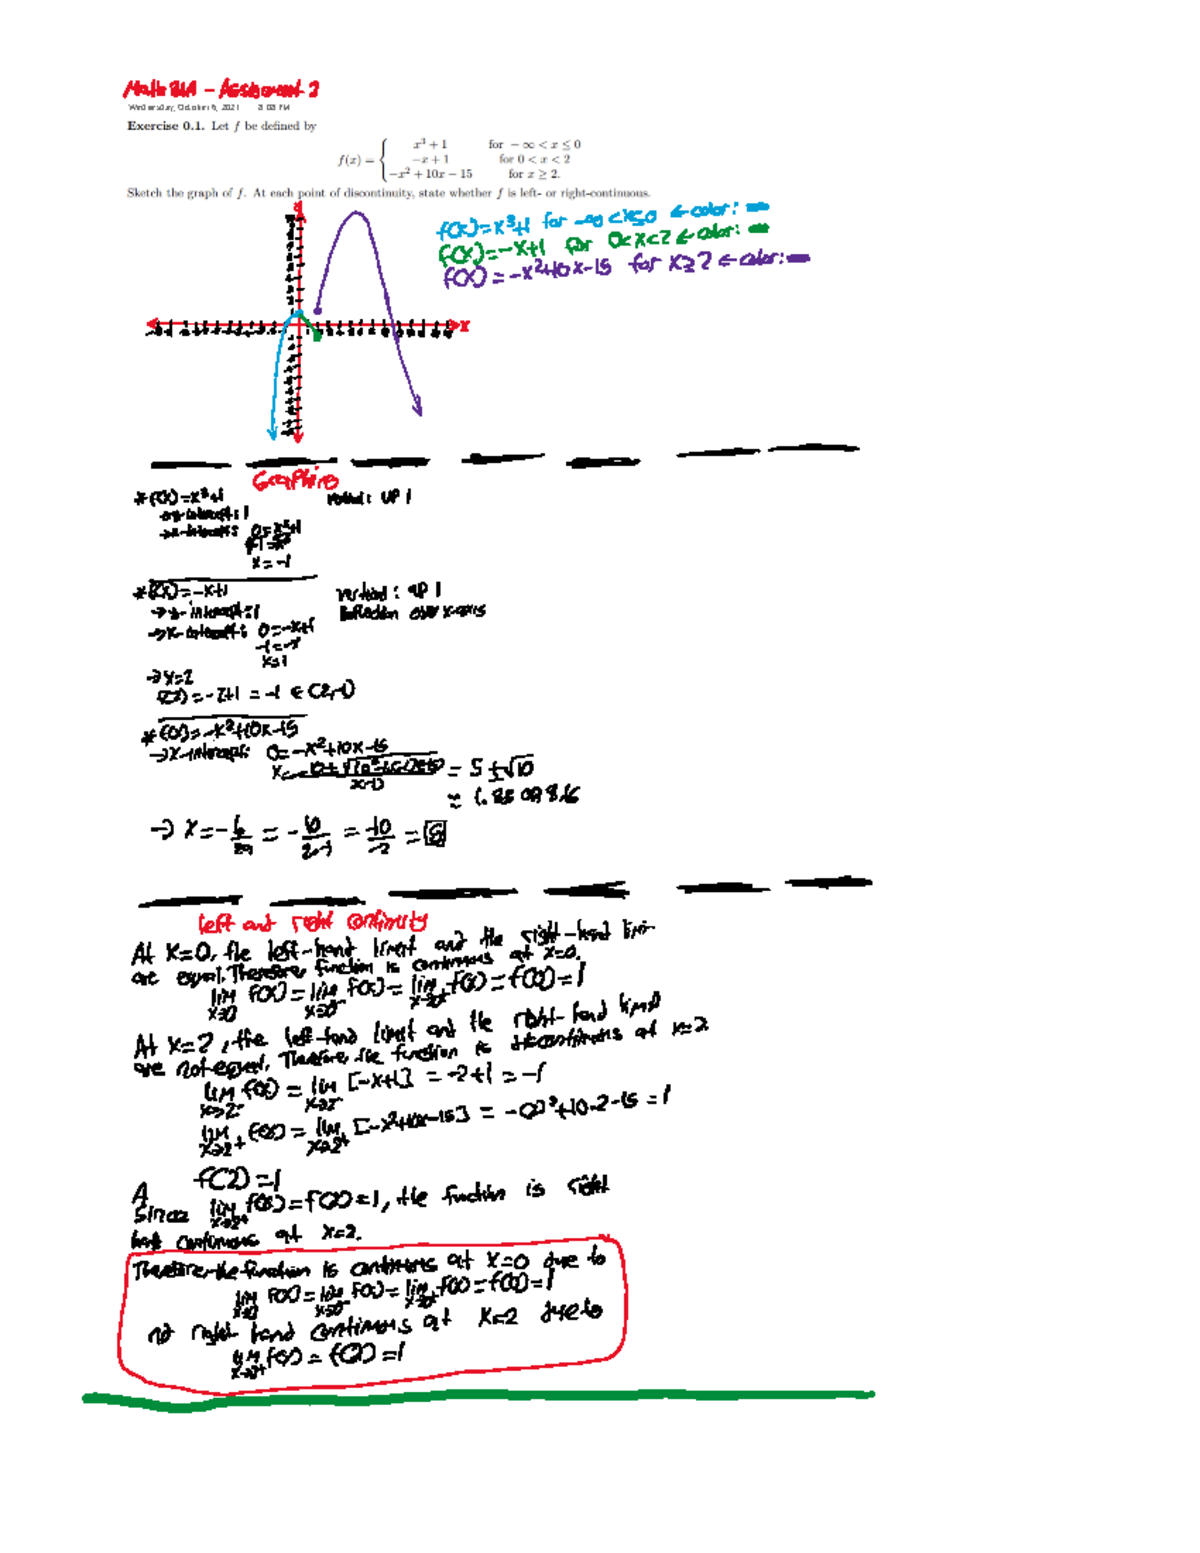 Math 21A - Assignment 2
Wednesday, October 6, 2021 8:08 PM
Exercise 0.1. Let f be defined by
f(x) = { x³ + 1 for − ∞ < x ≤ 0
−x + 1 for 0 < x < 2
−x² + 10x − 15 for x ≥ 2.
Sketch the graph of f. At each point of discontinuity, state whether f is left- or right-continuous.
f(x)=x³+1 for -∞<x≤0 ← color:
f(x)=-x+1 for 0<x<2 ← color:
f(x)=-x²+10x-15 for x≥2 ← color:
x
Graphing
*f(x)=x³+1 vertical: UP 1
→y-intercept: 1
→x-intercept: 0=x³+1
-1=x³
x=-1
*f(x)=-x+1 vertical: up 1
→y-intercept: 1 Reflection over x-axis
→x-intercept: 0=-x+1
-1=-x
x=1
→x=2
f(2)=-2+1=-1 ∈(2,-1)
*f(x)=-x²+10x-15
→x-intercept: 0=-x²+10x-15
= 5±√10
→ x=-b/2a = -10/2·-1 = -10/-2 = 5
left and right continuity
At x=0, the left-hand limit and the right-hand limit
are equal. Therefore, function is continuous at x=0.
lim x→0 f(x)= lim x→0⁻ f(x)= lim x→0⁺ f(x)=f(0)=1
At x=2, the left-hand limit and the right-hand limit
are not equal. Therefore, the function is discontinuous at x=2
lim x→2⁻ f(x)= lim x→2⁻ [-x+1] = -2+1=-1
lim x→2⁺ f(x)= lim x→2⁺ [-x²+10x-15] = -(2)²+10·2-15=1
f(2)=1
A
Since lim x→2⁺ f(x)=f(2)=1, the function is right
hand continuous at x=2.
Therefore, the function is continuous at x=0 due to
lim x→0 f(x)= lim x→0⁻ f(x)= lim x→0⁺ f(x)=f(0)=1
right-hand continuous at x=2 due to
lim x→2⁺ f(x)=f(2)=1